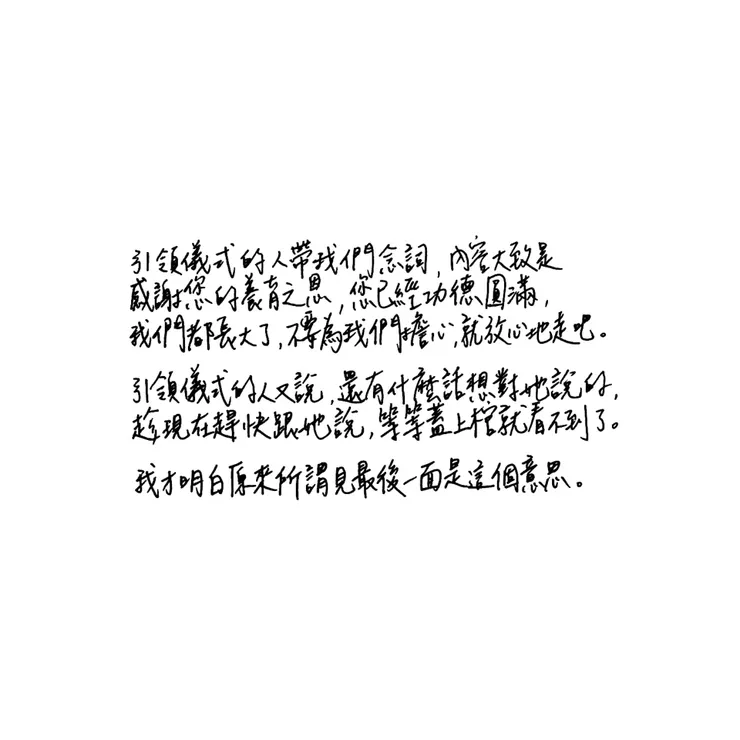 引領儀式的人帶我們念詞,內容大致是
感謝您的養育之恩,您已經功德圓滿,
我們都長大了,不要為我們擔心,就放心地走吧。
引領儀式的人又說,還有什麼話想對她說的,
趁現在趕快跟她說,等等蓋上棺就看不到了。
我才明白原來所謂見最後一面是這個意思。